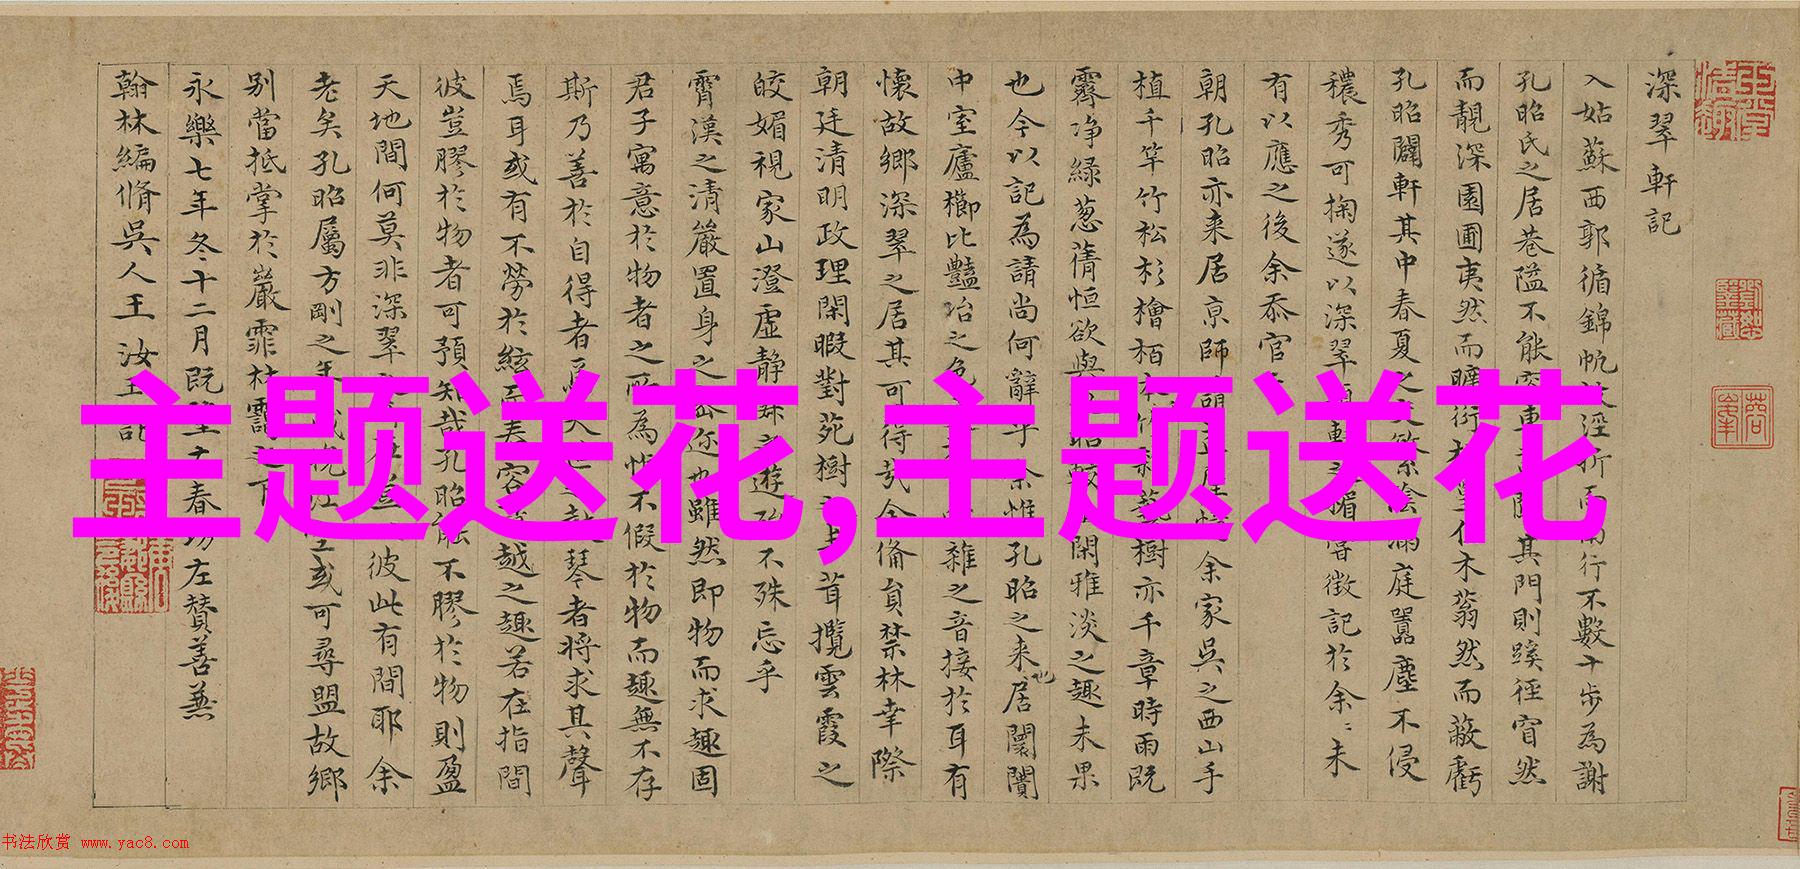 深翠軒記
入姑蘇西郭循錦帆涇折而南行不數十步為謝
孔昭氏之居巷隘不能容車其門則蹊徑窅然
而靚深園圃夷然而曠衍木蓊然而蔽虧
孔昭闢軒其中春夏之交繁陰滿庭囂塵不侵
穠秀可掬遂以深翠徵記於余〻未
有以應之後余忝官
朝孔昭亦来居京師余家吳之西山手
植千竿竹松杉檜栢樹亦千章時雨既
霽净緑葱蒨恒欲與閑雅淡之趣未果
也今以記為請尚何辭乎余惟孔昭之来居也闤闠
中室廬櫛比豔冶之色雜之音接於耳有
懷故鄉深翠之居其可得哉今俻員禁林幸際
朝廷清明政理閑暇對苑樹之葺攬雲霞之
皎媚視家山澄虛静遊殆不殊忘乎
霄漢之清嚴置身之迩也雖然即物而求趣固
君子寓意於物者之所為然不假於物而趣無不存
斯乃善於自得者琴者將求其聲
焉耳或有不勞於絃越之趣若在指間
彼豈膠於物者可預知哉孔昭能不膠於物則盈
天地間何莫非深翠彼此有間耶余
老矣孔昭屬方剛之年或可尋盟故鄉
别當抵掌於巖霏林靄之下
永樂七年冬十二月既望春坊左贊善兼
翰林編脩吳人王汝玉記
主题送花,主题送花
书法欣赏 www.yac8.com